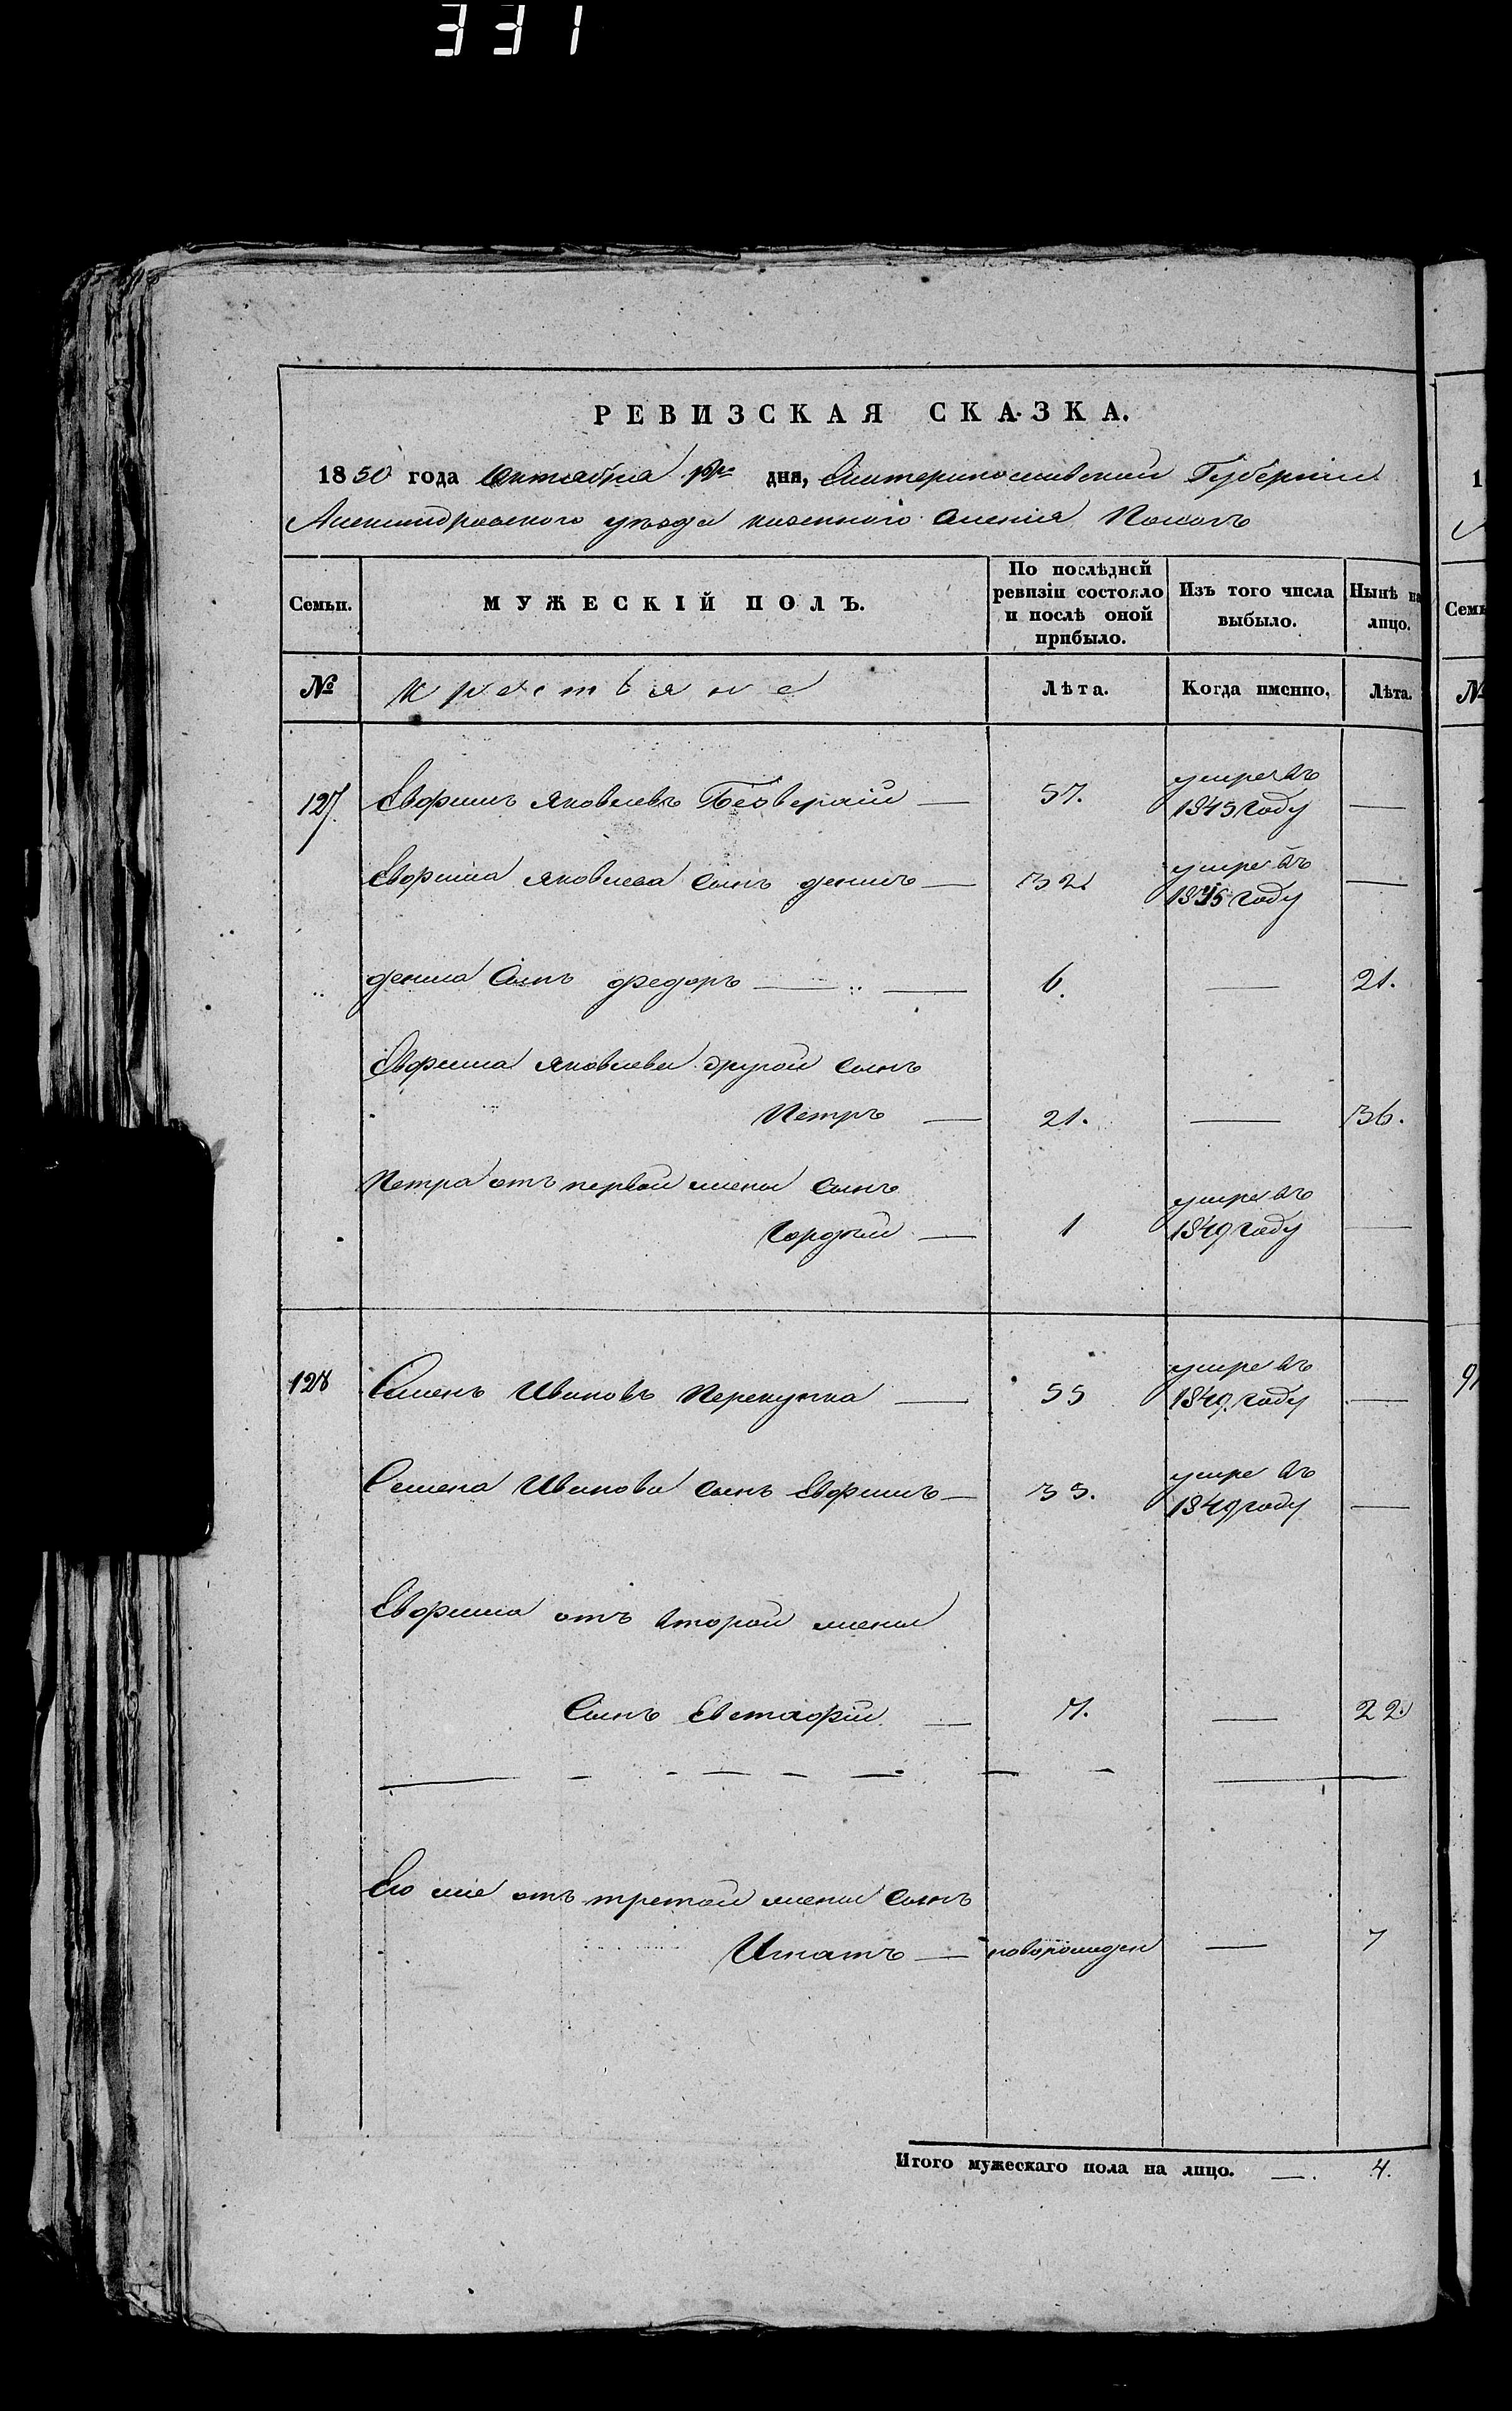 331
РЕВИЗСКАЯ СКАЗКА.
1850 года Октября дня, Екатеринославской Губернии
Александровского уѣзда казенного селения
Семьи. МУЖЕСКІЙ ПОЛЪ. По послѣдней ревизіи состояло и послѣ оной прибыло. Изъ того числа выбыло. Нынѣ на лицо.
№ крестьяне Лѣта. Когда именно, Лѣта.
127. Евфимъ Яковлевъ — 57. умре въ 1845 году —
Евфима Яковлева сынъ Денисъ — 32. умре въ 1845 году —
Дениса сынъ Федоръ — 6. — 21.
Евфима Яковлева другой сынъ
Петръ — 21. — 36.
Петра отъ первой жены сынъ
Гордѣй — 1 умре въ 1849 году —
128 Семенъ Ивановъ — 55 умре въ 1849 году —
Семена Иванова сынъ Евфимъ — 33. умре въ 1849 году —
Евфима отъ второй жены
Сынъ Евстафій — 7. — 22.
Его же отъ третей жены сынъ
Игнатъ — новорожден — 7
Итого мужескаго пола на лицо. — 4.
1
Семь
№